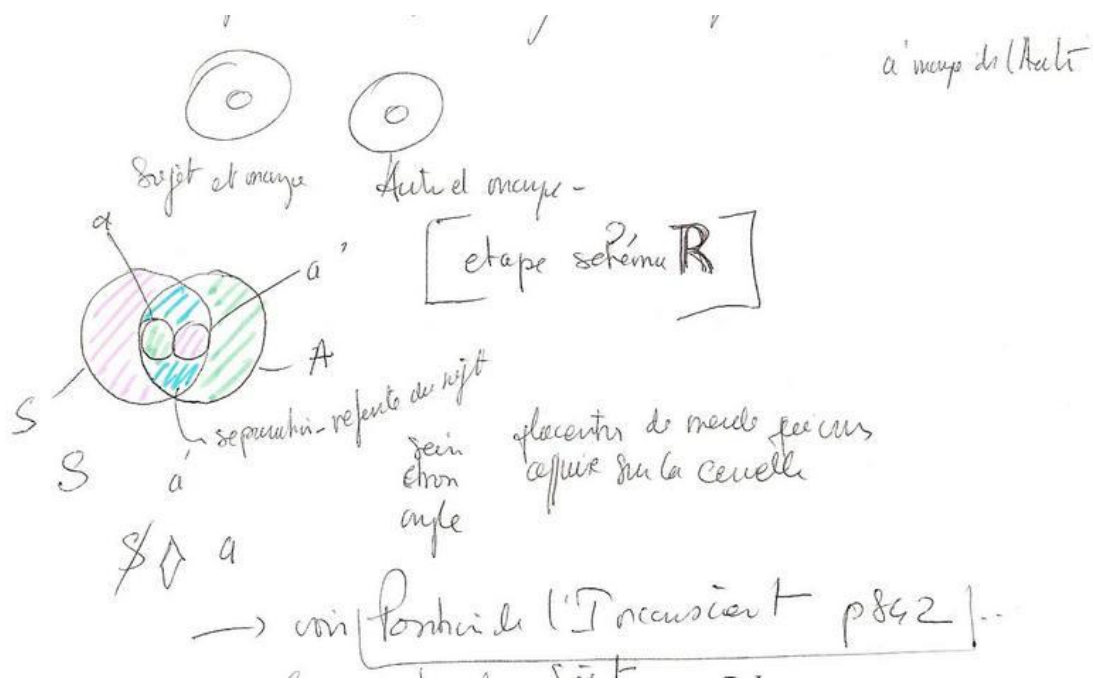 a' manque de l'Autre
Sujet et manque
Autre et manque -
a
a'
[etape schéma R]
A
S
separation - refente du sujet
S a'
sein
étron
ongle
placentas de merde qui nous
appuie sur la cervelle
$ ◊ a
→ voir Position de l'Inconscient p842 ...